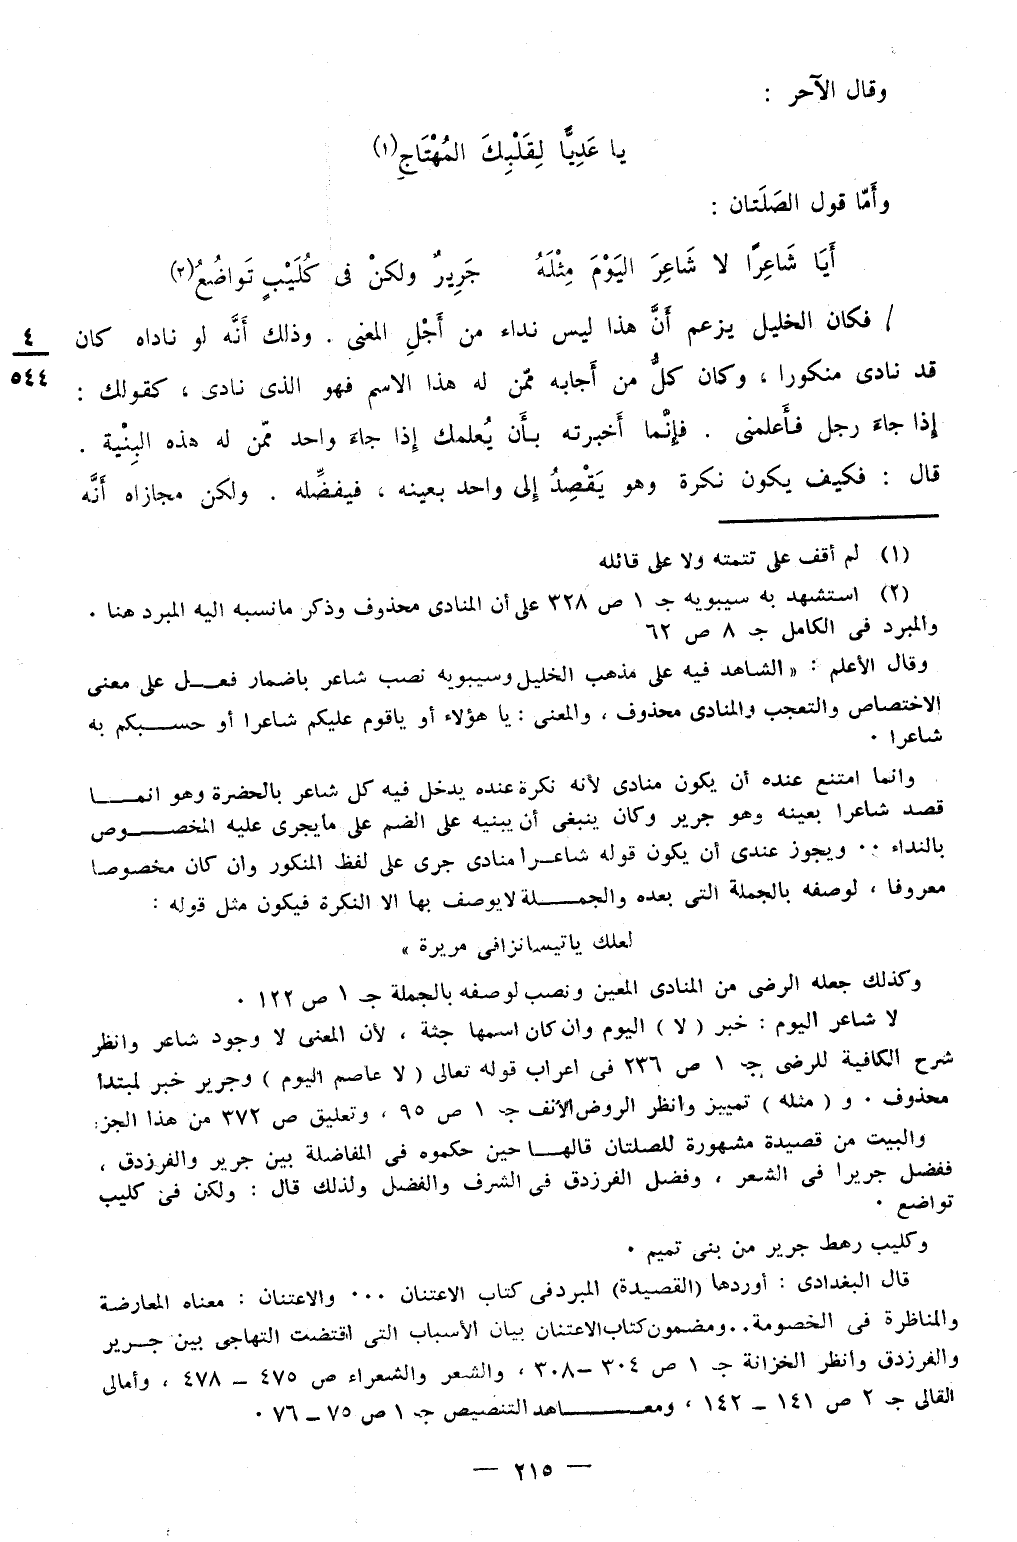 وقال الآحر :
يا عَدِيًّا لِقَلْبِكَ المُهْتَاجِ(١)
وأَمّا قول الصَلَتان :
أَيَا شَاعِرًا لا شَاعِرَ اليَوْمَ مِثْلَهُ جَرِيرٌ ولكنْ فى كُلَيْبٍ تَواضُعُ(٢)
/ فكان الخليل يزعم أَنَّ هذا ليس نداء من أَجْلِ المعنى . وذلك أَنَّه لو ناداه كان
٤
٥٤٤
قد نادى منكورا ، وكان كلُّ من أَجابه ممّن له هذا الاسم فهو الذى نادى ، كقولك :
إِذا جاءَ رجل فأَعلمنى . فإِنَّما أَخبرته بأَن يُعلمك إِذا جاءَ واحد ممّن له هذه البِنْية .
قال : فكيف يكون نكرة وهو يَقْصِدُ إِلى واحد بعينه ، فيفضِّله . ولكن مجازاه أَنَّه
(١) لم أقف على تتمته ولا على قائله
(٢) استشهد به سيبويه جـ ١ ص ٣٢٨ على أن المنادى محذوف وذكر مانسبه اليه المبرد هنا ٠
والمبرد فى الكامل جـ ٨ ص ٦٢
وقال الأعلم : « الشاهد فيه على مذهب الخليل وسيبويه نصب شاعر باضمار فعـــل على معنى
الاختصاص والتعجب والمنادى محذوف ، والمعنى : يا هؤلاء أو ياقوم عليكم شاعرا أو حســـبكم به
شاعرا ٠
وانما امتنع عنده أن يكون منادى لأنه نكرة عنده يدخل فيه كل شاعر بالحضرة وهو انمـــا
قصد شاعرا بعينه وهو جرير وكان ينبغى أن يبنيه على الضم على مايجرى عليه المخصـــوص
بالنداء ٠٠ ويجوز عندى أن يكون قوله شاعــرا منادى جرى على لفظ المنكور وان كان مخصوصا
معروفا ، لوصفه بالجملة التى بعده والجمـــلة لايوصف بها الا النكرة فيكون مثل قوله :
لعلك ياتيسا نزا فى مريرة »
وكذلك جعله الرضى من المنادى المعين ونصب لوصفه بالجملة جـ ١ ص ١٢٢ ٠
لا شاعر اليوم : خبر ( لا ) اليوم وان كان اسمها جثة ، لأن المعنى لا وجود شاعر وانظر
شرح الكافية للرضى جـ ١ ص ٢٣٦ فى اعراب قوله تعالى ( لا عاصم اليوم ) وجرير خبر لمبتدأ
محذوف ٠ و ( مثله ) تمييز وانظر الروض الأنف جـ ١ ص ٩٥ ، وتعليق ص ٣٧٢ من هذا الجزء
والبيت من قصيدة مشهورة للصلتان قالهـــا حين حكموه فى المفاضلة بين جرير والفرزدق ،
ففضل جريرا فى الشعر ، وفضل الفرزدق فى الشرف والفضل ولذلك قال : ولكن فى كليب
تواضع ٠
وكليب رهط جرير من بنى تميم ٠
قال البغدادى : أوردها (القصيدة) المبرد فى كتاب الاعتنان ٠٠٠ والاعتنان : معناه المعارضة
والمناظرة فى الخصومة.. ومضمون كتاب الاعتنان بيان الأسباب التى اقتضت التهاجى بين جــرير
والفرزدق وانظر الخزانة جـ ١ ص ٣٠٤ – ٣٠٨ ، والشعر والشعراء ص ٤٧٥ – ٤٧٨ ، وأمالى
القالى جـ ٢ ص ١٤١ – ١٤٢ ، ومعـــــاهد التنصيص جـ ١ ص ٧٥ – ٧٦ ٠
— ٢١٥ —